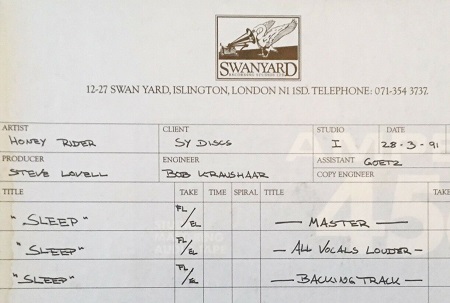 SWANYARD
RECORDING STUDIOS LTD
12-27 SWAN YARD, ISLINGTON, LONDON N1 1SD. TELEPHONE: 071-354 3737.
ARTIST CLIENT STUDIO DATE
HONEY RIDER SY DISCS I 28-3-91
PRODUCER ENGINEER ASSISTANT GOETZ
STEVE LOVELL BOB KRAUSHAAR COPY ENGINEER
TITLE TAKE TIME SPIRAL TITLE TAKE
"SLEEP" FL/EL — MASTER —
"SLEEP" FL/EL — ALL VOCALS LOUDER —
"SLEEP" FL/EL — BACKING TRACK —
AMPEX
45